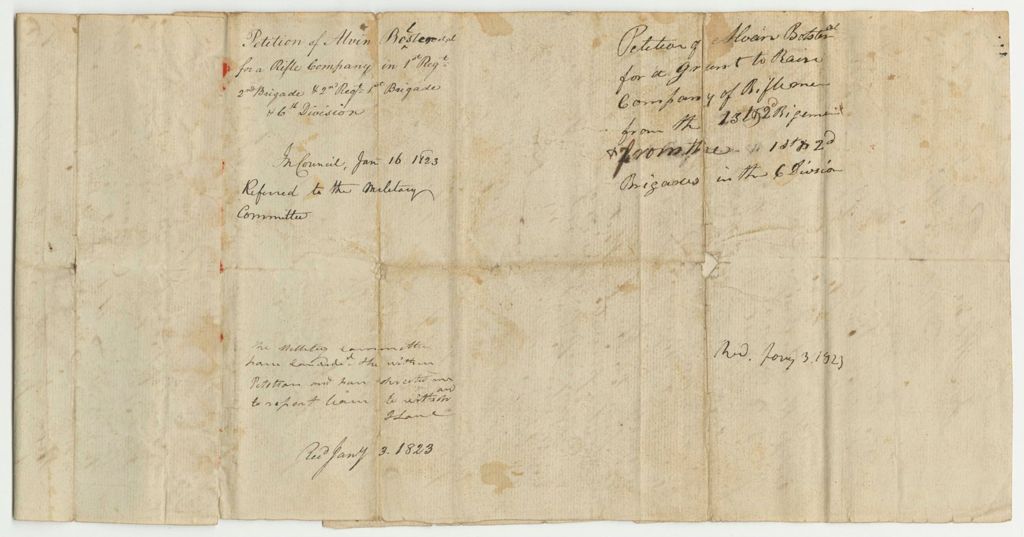 Petition of Alvin Bolster et al
for a Rifle Company in 1st Regt
2nd Brigade & 2nd Regt 1st Brigade
& 6th Division
In Council, Jan 16 1823
Referred to the Military
Committee
The Military committee
have considd the within
Petition and have directed me
to report leave to withdraw
J Lane
Recd Jany 3. 1823
Petition of Alvin Bolster et al
for a Grant to Raise
Company of Riflemen
from the 1st & 2d Rigement
& from the 1st & 2d
Brigades in the 6 Divsion
Recd. Jany 3. 1823